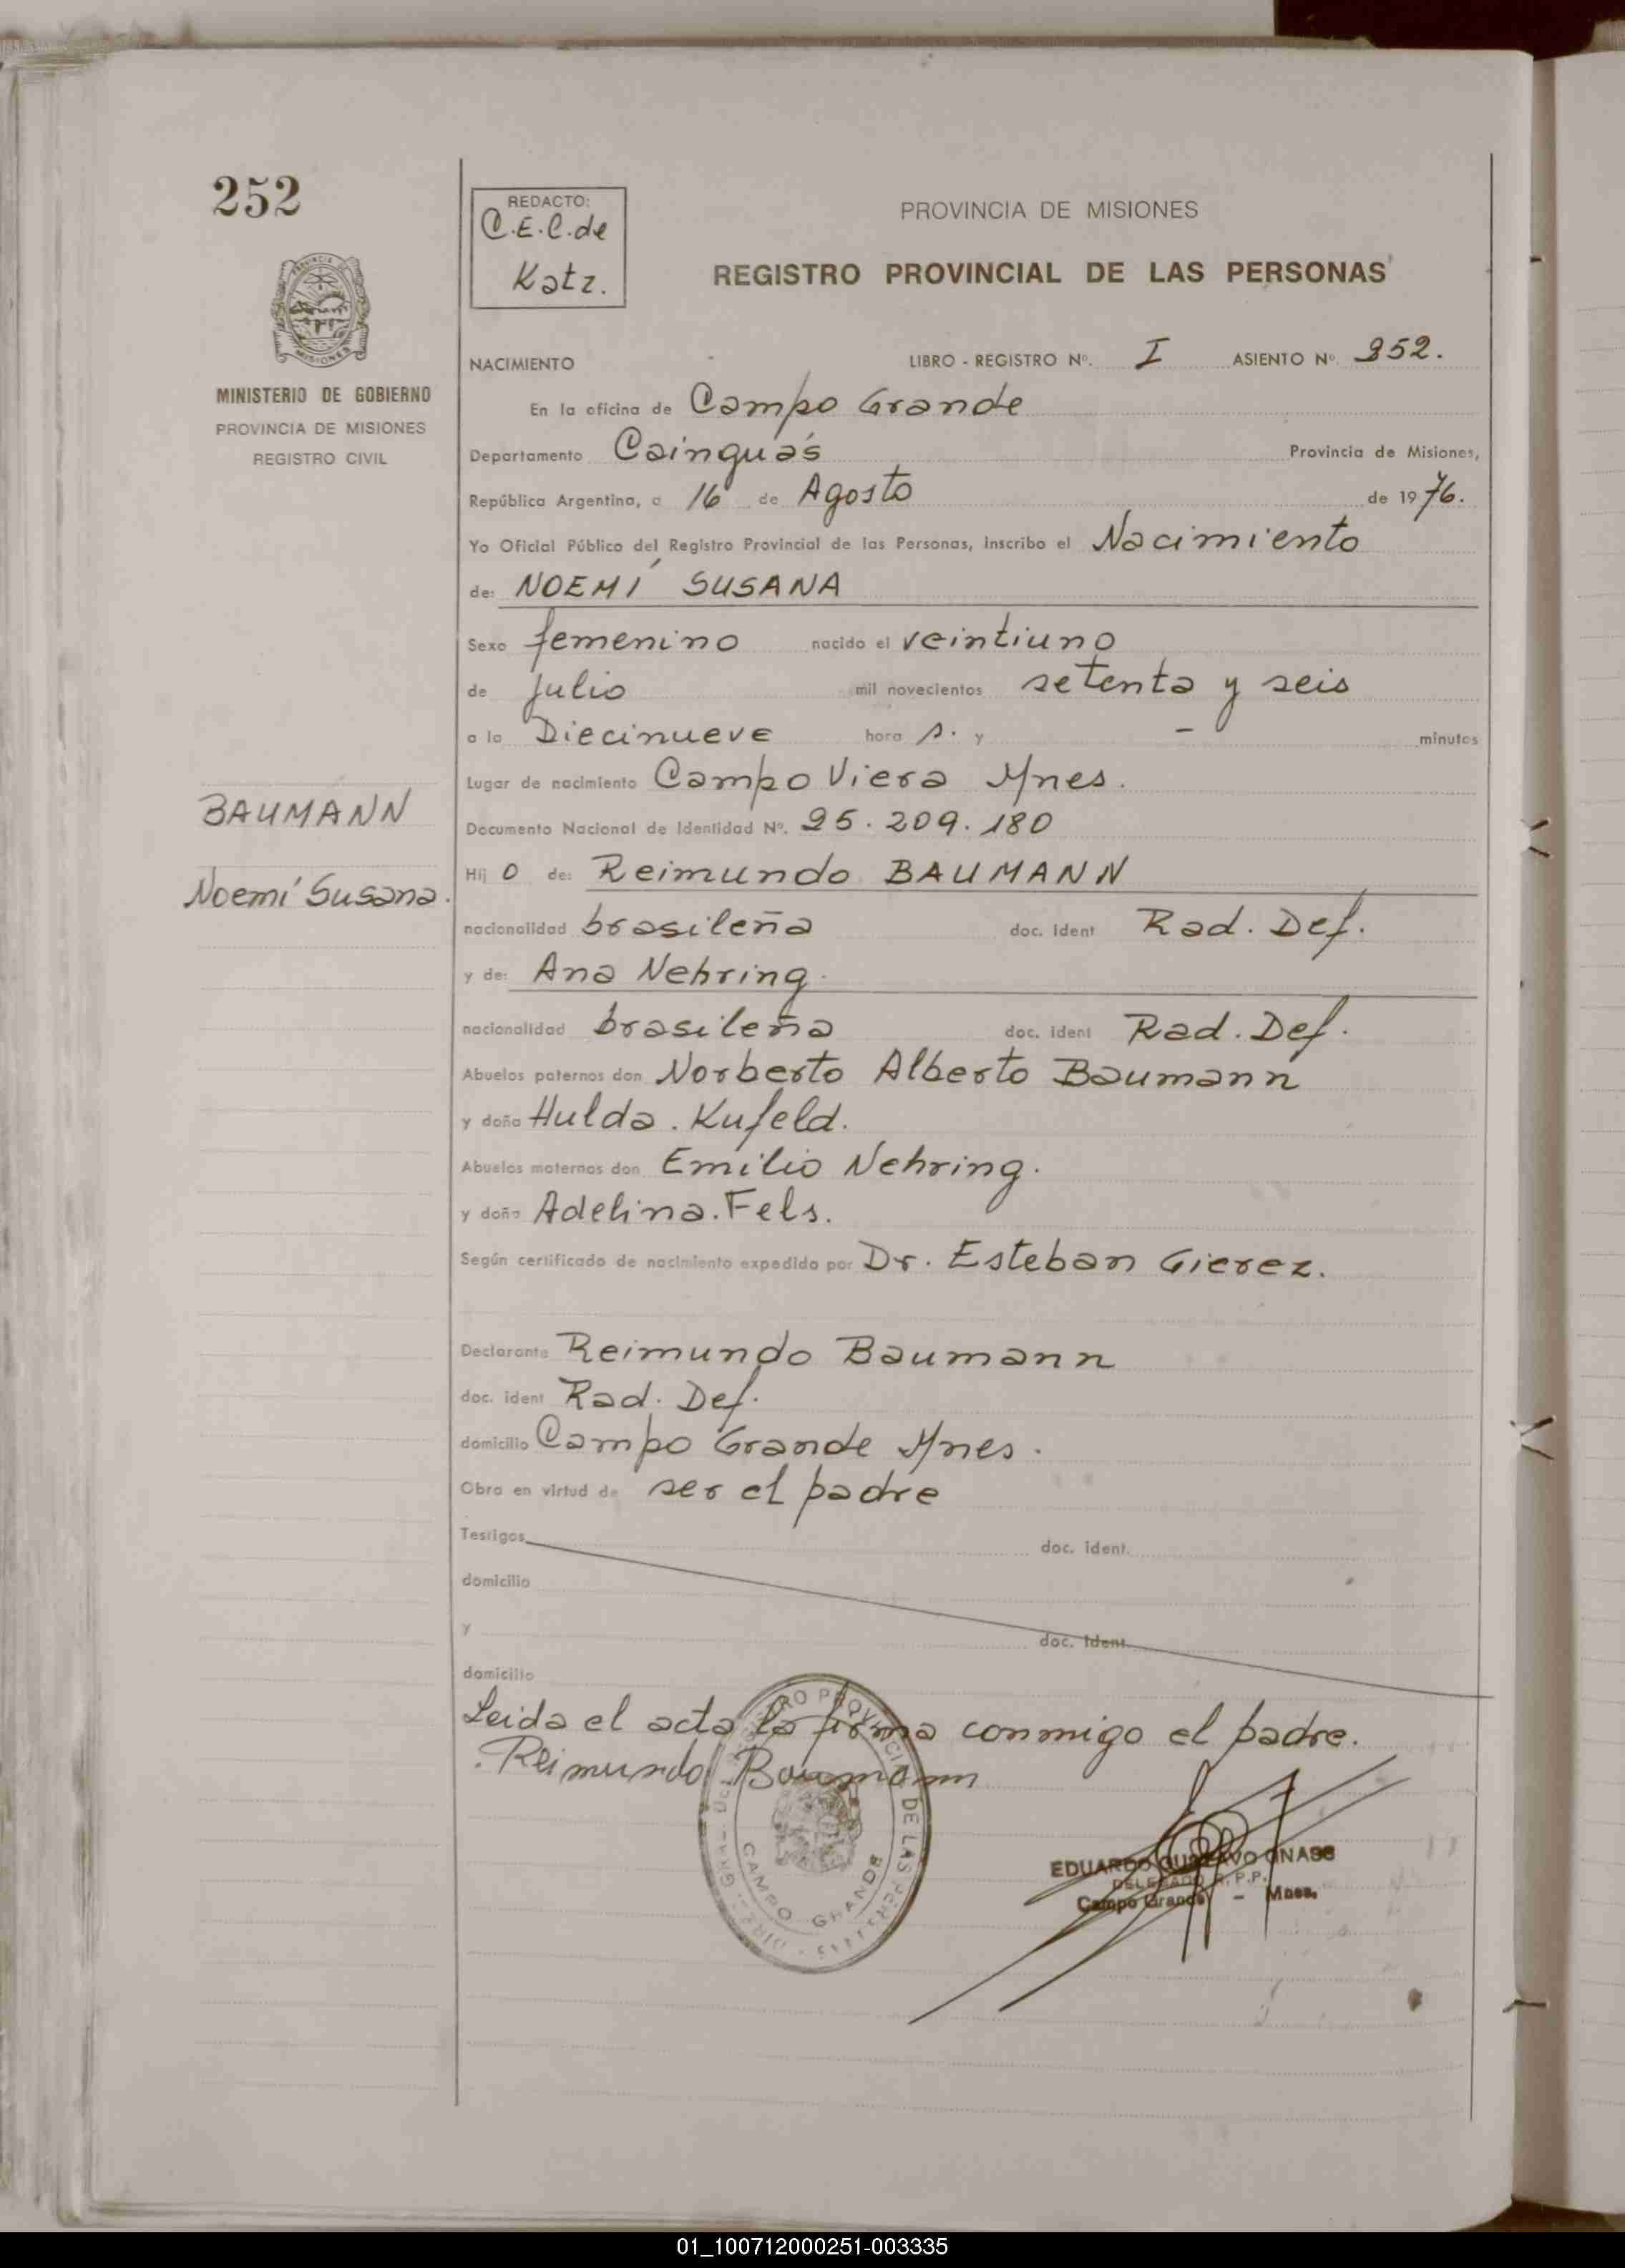 252
REDACTO:
C.E.C. de
Katz.
PROVINCIA DE MISIONES
REGISTRO PROVINCIAL DE LAS PERSONAS
PROVINCIA DE
MISIONES
MINISTERIO DE GOBIERNO
PROVINCIA DE MISIONES
REGISTRO CIVIL
NACIMIENTO LIBRO - REGISTRO Nº. I ASIENTO Nº. 252.
En la oficina de Campo Grande
Departamento Cainguás Provincia de Misiones,
República Argentina, a 16 de Agosto de 1976.
Yo Oficial Público del Registro Provincial de las Personas, Inscribo el Nacimiento
de: NOEMÍ SUSANA
Sexo femenino nacido el veintiuno
de julio mil novecientos setenta y seis
a la Diecinueve hora s. y - minutos
Lugar de nacimiento Campo Viera Mnes.
BAUMANN
Documento Nacional de Identidad Nº. 25.209.180
Hij o de: Reimundo BAUMANN
Noemí Susana.
nacionalidad brasileña doc. ident Rad. Def.
y de: Ana Nehring.
nacionalidad brasileña doc. ident Rad. Def.
Abuelos paternos don Norberto Alberto Baumann
y doña Hulda. Kufeld.
Abuelos maternos don Emilio Nehring.
y doña Adelina. Fels.
Según certificado de nacimiento expedido por Dr. Esteban Gierez.
Declarante Reimundo Baumann
doc. ident Rad. Def.
domicilio Campo Grande Mnes.
Obra en virtud de ser el padre
Testigos doc. ident.
domicilio
y doc. ident.
domicilio
Leida el acta la firma conmigo el padre.
Reimundo Baumann
CAMPO GRANDE
EDUARDO GUSTAVO
DELEGADO R.P.P.
Campo Grande - Mnes.
01_100712000251-003335